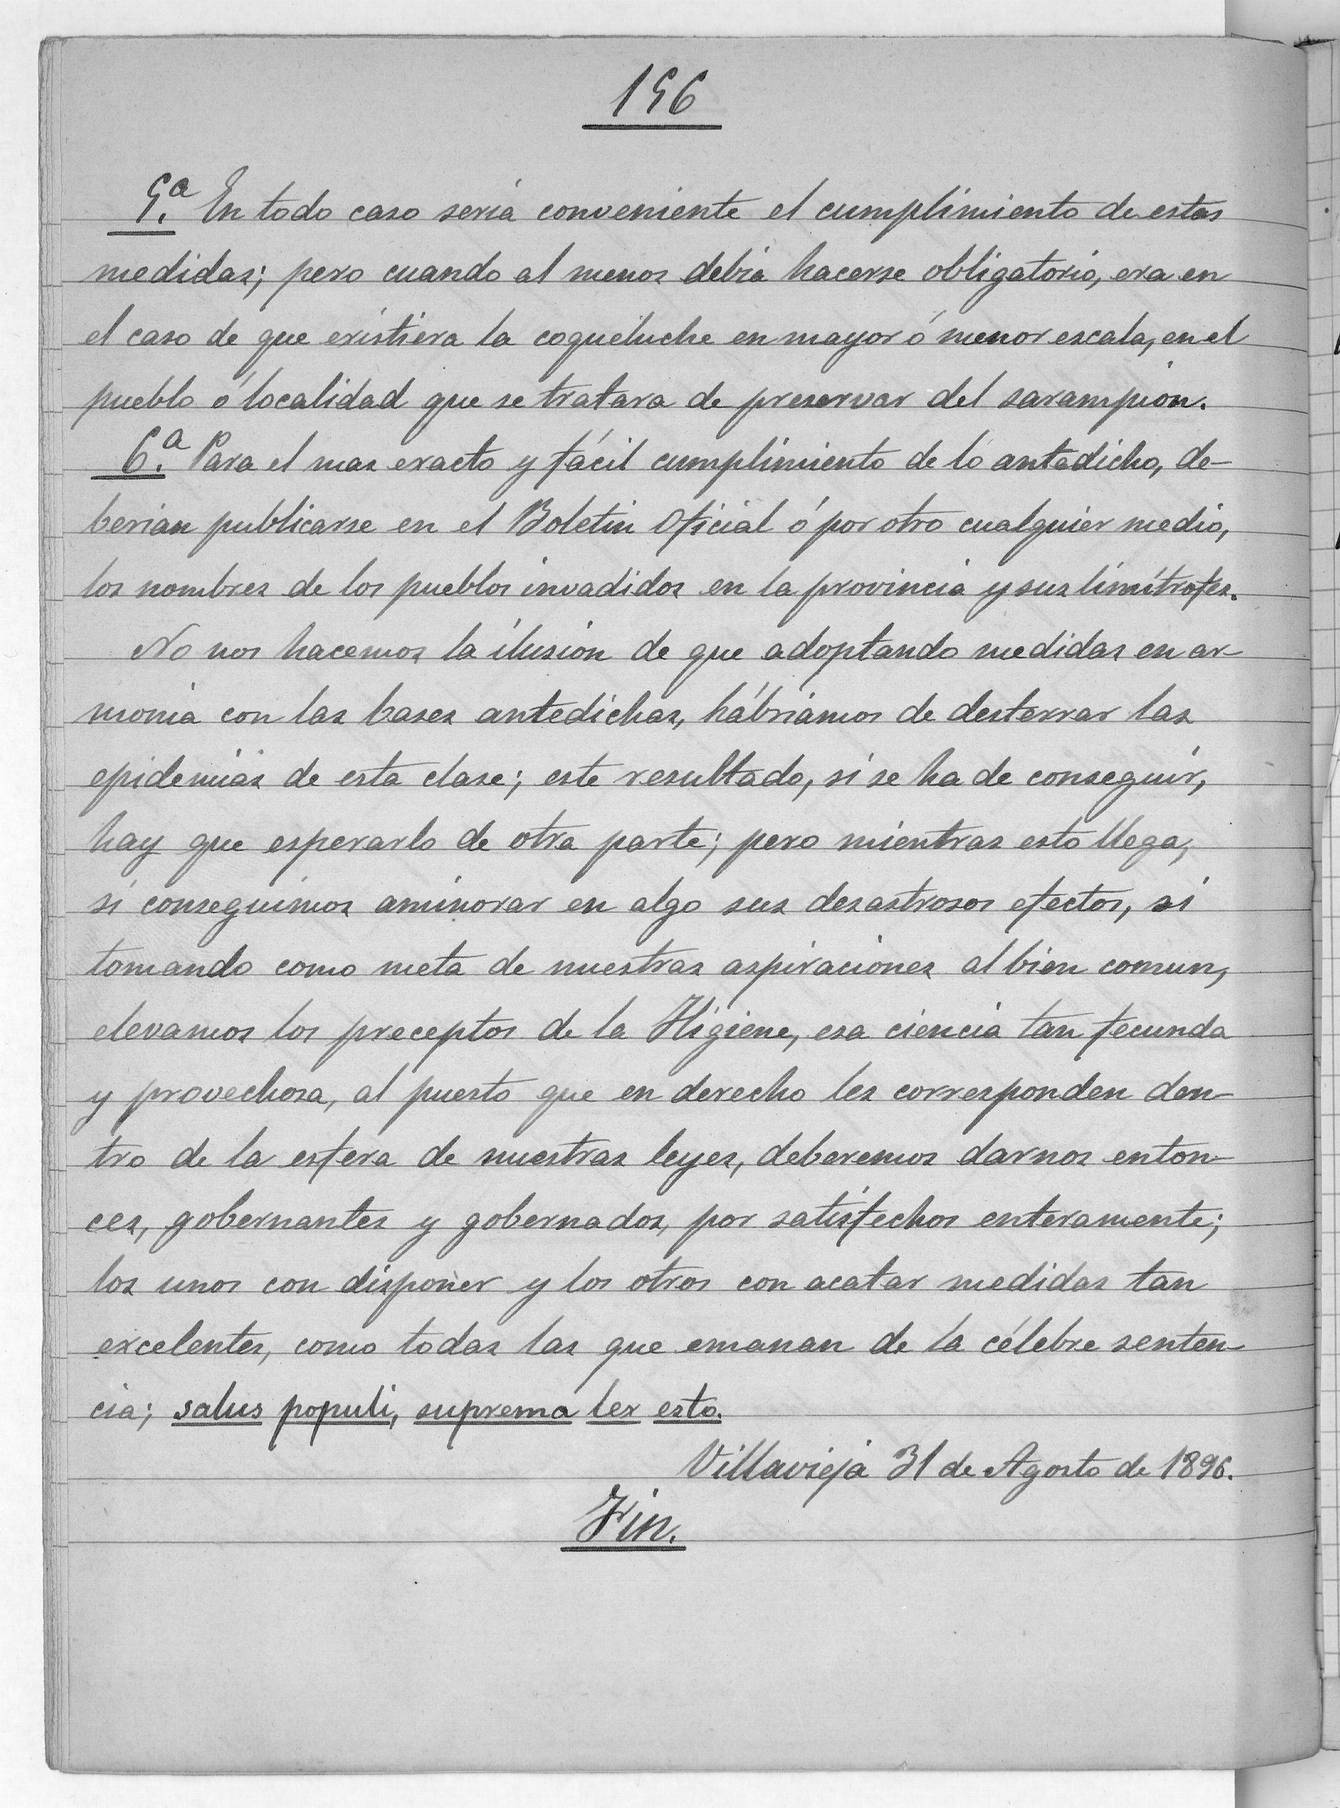 156
5.ª En todo caso sería conveniente el cumplimiento de estas
medidas; pero cuando al menos debía hacerse obligatorio, era en
el caso de que existiera la coqueluche en mayor ó menor escala, en el
pueblo ó localidad que se tratara de preservar del sarampión.
6.ª Para el mas exacto y fácil cumplimiento de lo antedicho, de-
berian publicarse en el Boletin Oficial ó por otro cualquier medio,
los nombres de los pueblos invadidos en la provincia y sus limítrofes.
No nos hacemos la ilusión de que adoptando medidas en ar-
monia con las bases antedichas, hábriamos de desterrar las
epidemias de esta clase; este resultado, si se ha de conseguir,
hay que esperarlo de otra parte; pero mientras esto llega,
si conseguimos aminorar en algo sus desastrosos efectos, si
tomando como meta de nuestras aspiraciones al bien comun,
elevamos los preceptos de la Higiene, esa ciencia tan fecunda
y provechosa, al puesto que en derecho les corresponden den-
tro de la esfera de nuestras leyes, deberemos darnos enton-
ces, gobernantes y gobernados, por satisfechos enteramente;
los unos con disponer y los otros con acatar medidas tan
excelentes, como todas las que emanan de la célebre senten-
cia; salus populi, suprema lex esto.
Villavieja 31 de Agosto de 1896.
Fin.